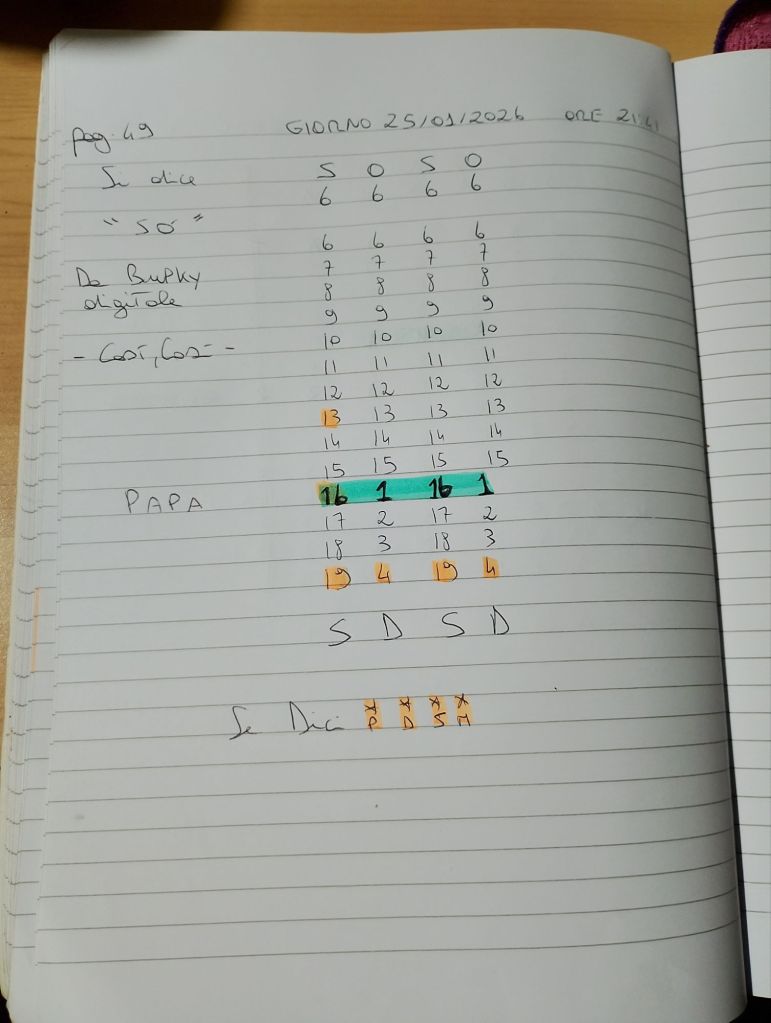 pag. 49 GIORNO 25/01/2026 ORE 21:41
Si dice S O S O
6 6 6 6
"SO"
6 6 6 6
7 7 7 7
Da BUPKY 8 8 8 8
digitale 9 9 9 9
10 10 10 10
- Così, Così - 11 11 11 11
12 12 12 12
13 13 13 13
14 14 14 14
15 15 15 15
PAPA 16 1 16 1
17 2 17 2
18 3 18 3
19 4 19 4
S D S D
Se Dici * * * *
P D S M